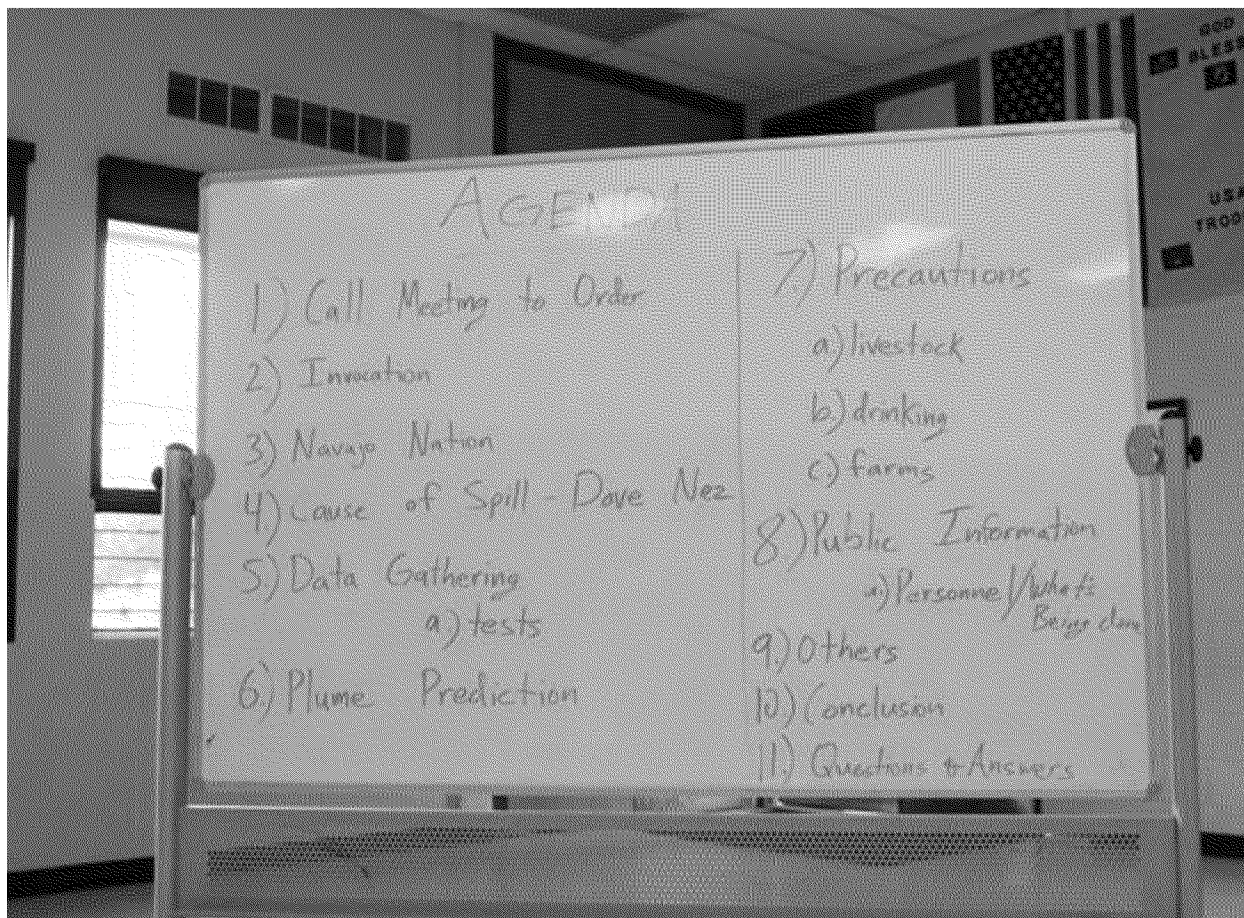 AGENDA
1) Call Meeting to Order
2) Invocation
3) Navajo Nation
4) Cause of Spill - Dave Nez
5) Data Gathering
a) tests
6.) Plume Prediction
7.) Precautions
a) livestock
b.) drinking
c.) farms
8.) Public Information
a) Personnel/What's
Being done
9.) Others
10.) Conclusion
11.) Questions & Answers
GOD
BLESS
USA